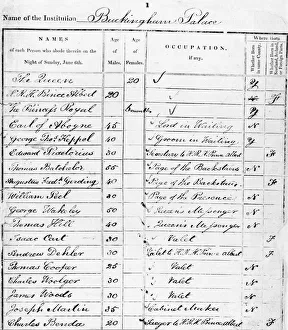 1
Name of the Institution Buckingham Palace
NAMES
of each Person who abode therein on the
Night of Sunday, June 6th.
Age of Males.
Age of Females.
OCCUPATION,
if any.
Where Born
Whether Born in same County.
The Queen 20 ✓ y
H.R.H. Prince Albert 20 F
The Princess Royal y
Earl of Aboyne 45 Lord in Waiting N
George Thos. Keppel 40 Groom in Waiting y
Edward Praetorius 30 Secretary to H.R.H. Prince Albert F
Thomas Batchelor 55 Page of the Backstairs N
Augustus Gerding 40 Page of the Backstairs F
William Seel 30 Page of the Presence N
George Wakeley 50 Queens Messenger N
Thomas Hill 40 Queens Messenger N
Isaac Cart 30 Valet F
Andrew Dehler 30 Valet to H.R.H. Prince Albert F
Thomas Cooper 35 Valet N
Charles Woolger 30 Valet N
James Woods 30 Valet N
Joseph Martin 35 Cabinet Maker N
Charles Benda 20 Jaeger to H.R.H. Prince Albert F